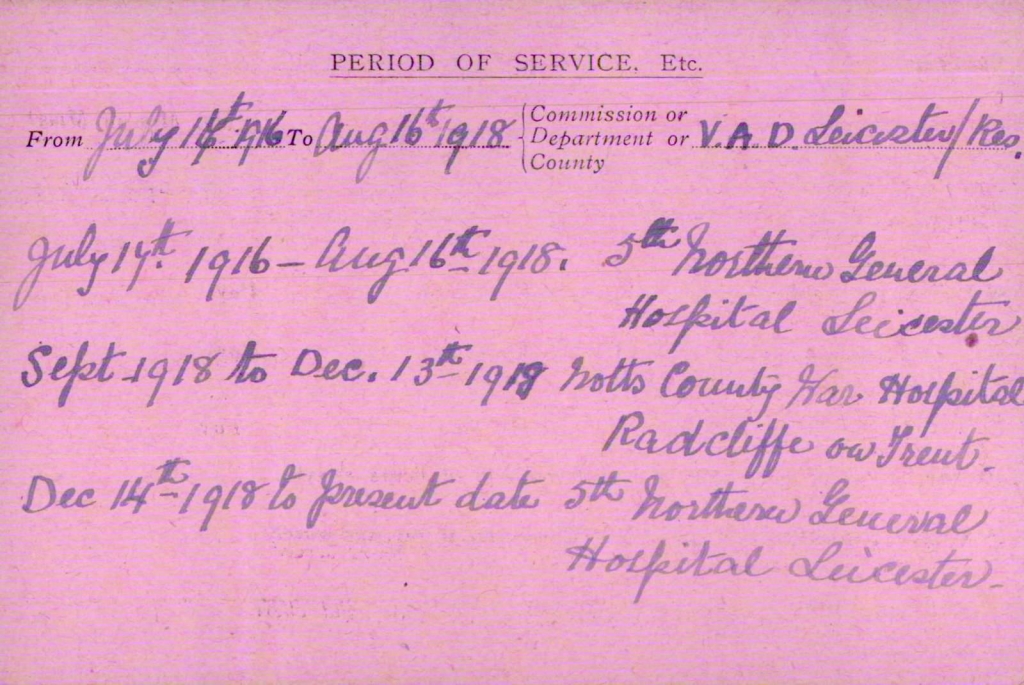 PERIOD OF SERVICE, Etc.
From July 17th 1916 To Aug 16th 1918 Commission or Department or County V.A.D. Leicester/Res.
July 17th. 1916 – Aug 16th 1918. 5th Northern General
Hospital Leicester
Sept 1918 to Dec. 13th 1918 Notts County War Hospital
Radcliffe on Trent.
Dec 14th 1918 to present date 5th Northern General
Hospital Leicester.